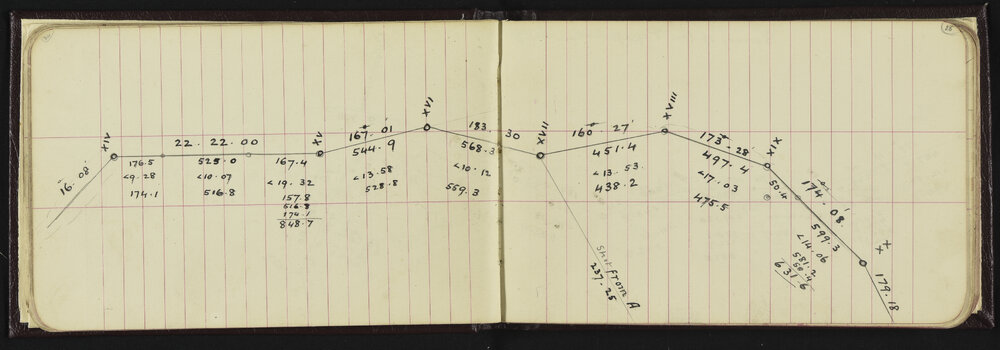 XIV
16.08
22. 22. 00
176.5
<9.28
174.1
525.0
<10.07
516.8
XV
167.4
<19.32
157.8
516.8
174.1
848.7
167. 01
544.9
<13.58
528.8
XVI
183. 30
568.3
<10.12
559.3
XVII
160 27'
451.4
<13. 53.
438.2
Shot from A
237.25
XVIII
173 28'
497.4
<17.03
475.5
XIX
50.4
174. 08'.
599.3
<14.06
581.2
50.4
631.6
XX
179.18